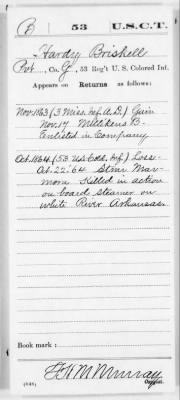 B | 53 | U.S.C.T.
Hardy Brishell
Pvt, Co. G, 53 Reg't U. S. Colored Inf.
Appears on Returns as follows:
Nov. 1863 (3 Miss. Inf. A.D.) Gain
Nov. 17 Millikens B-
Enlisted in Company
Oct. 1864 (53 US Cold. Inf.) Loss-
Oct. 22 '64 Stmr Mar-
mora Killed in action
on board steamer on
White River Arkansas.
Book mark:
F H M Murray
(546)
Copyist.